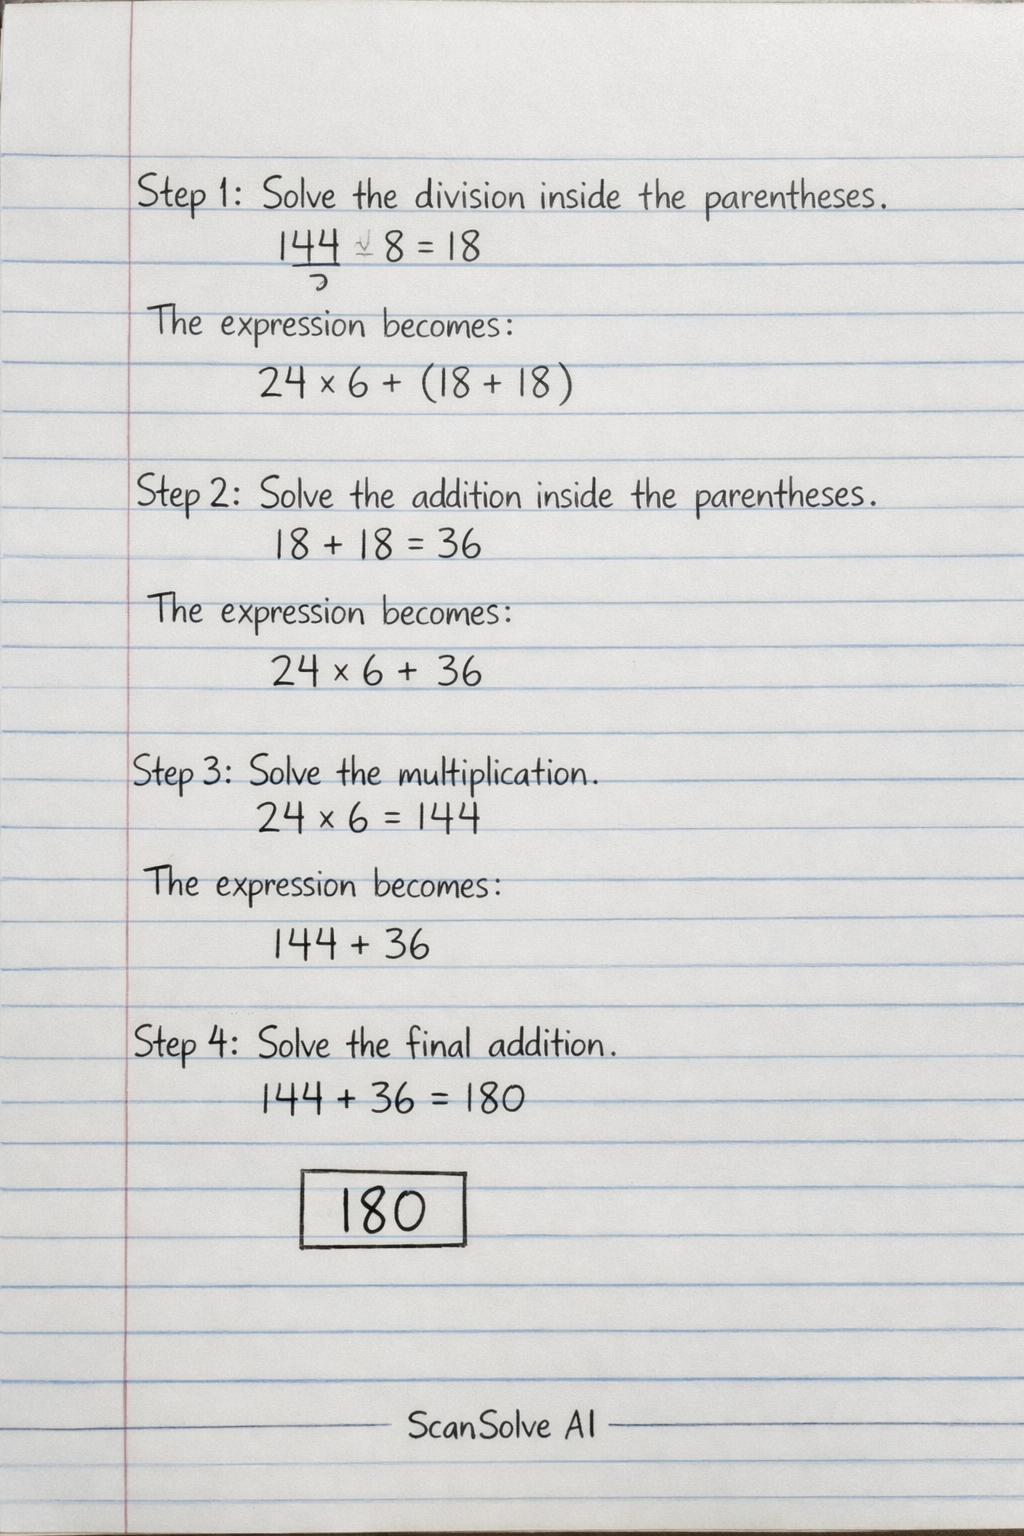 Step 1: Solve the division inside the parentheses.
144 8 = 18
The expression becomes:
24 × 6 + (18 + 18)
Step 2: Solve the addition inside the parentheses.
18 + 18 = 36
The expression becomes:
24 × 6 + 36
Step 3: Solve the multiplication.
24 × 6 = 144
The expression becomes:
144 + 36
Step 4: Solve the final addition.
144 + 36 = 180
180
ScanSolve AI